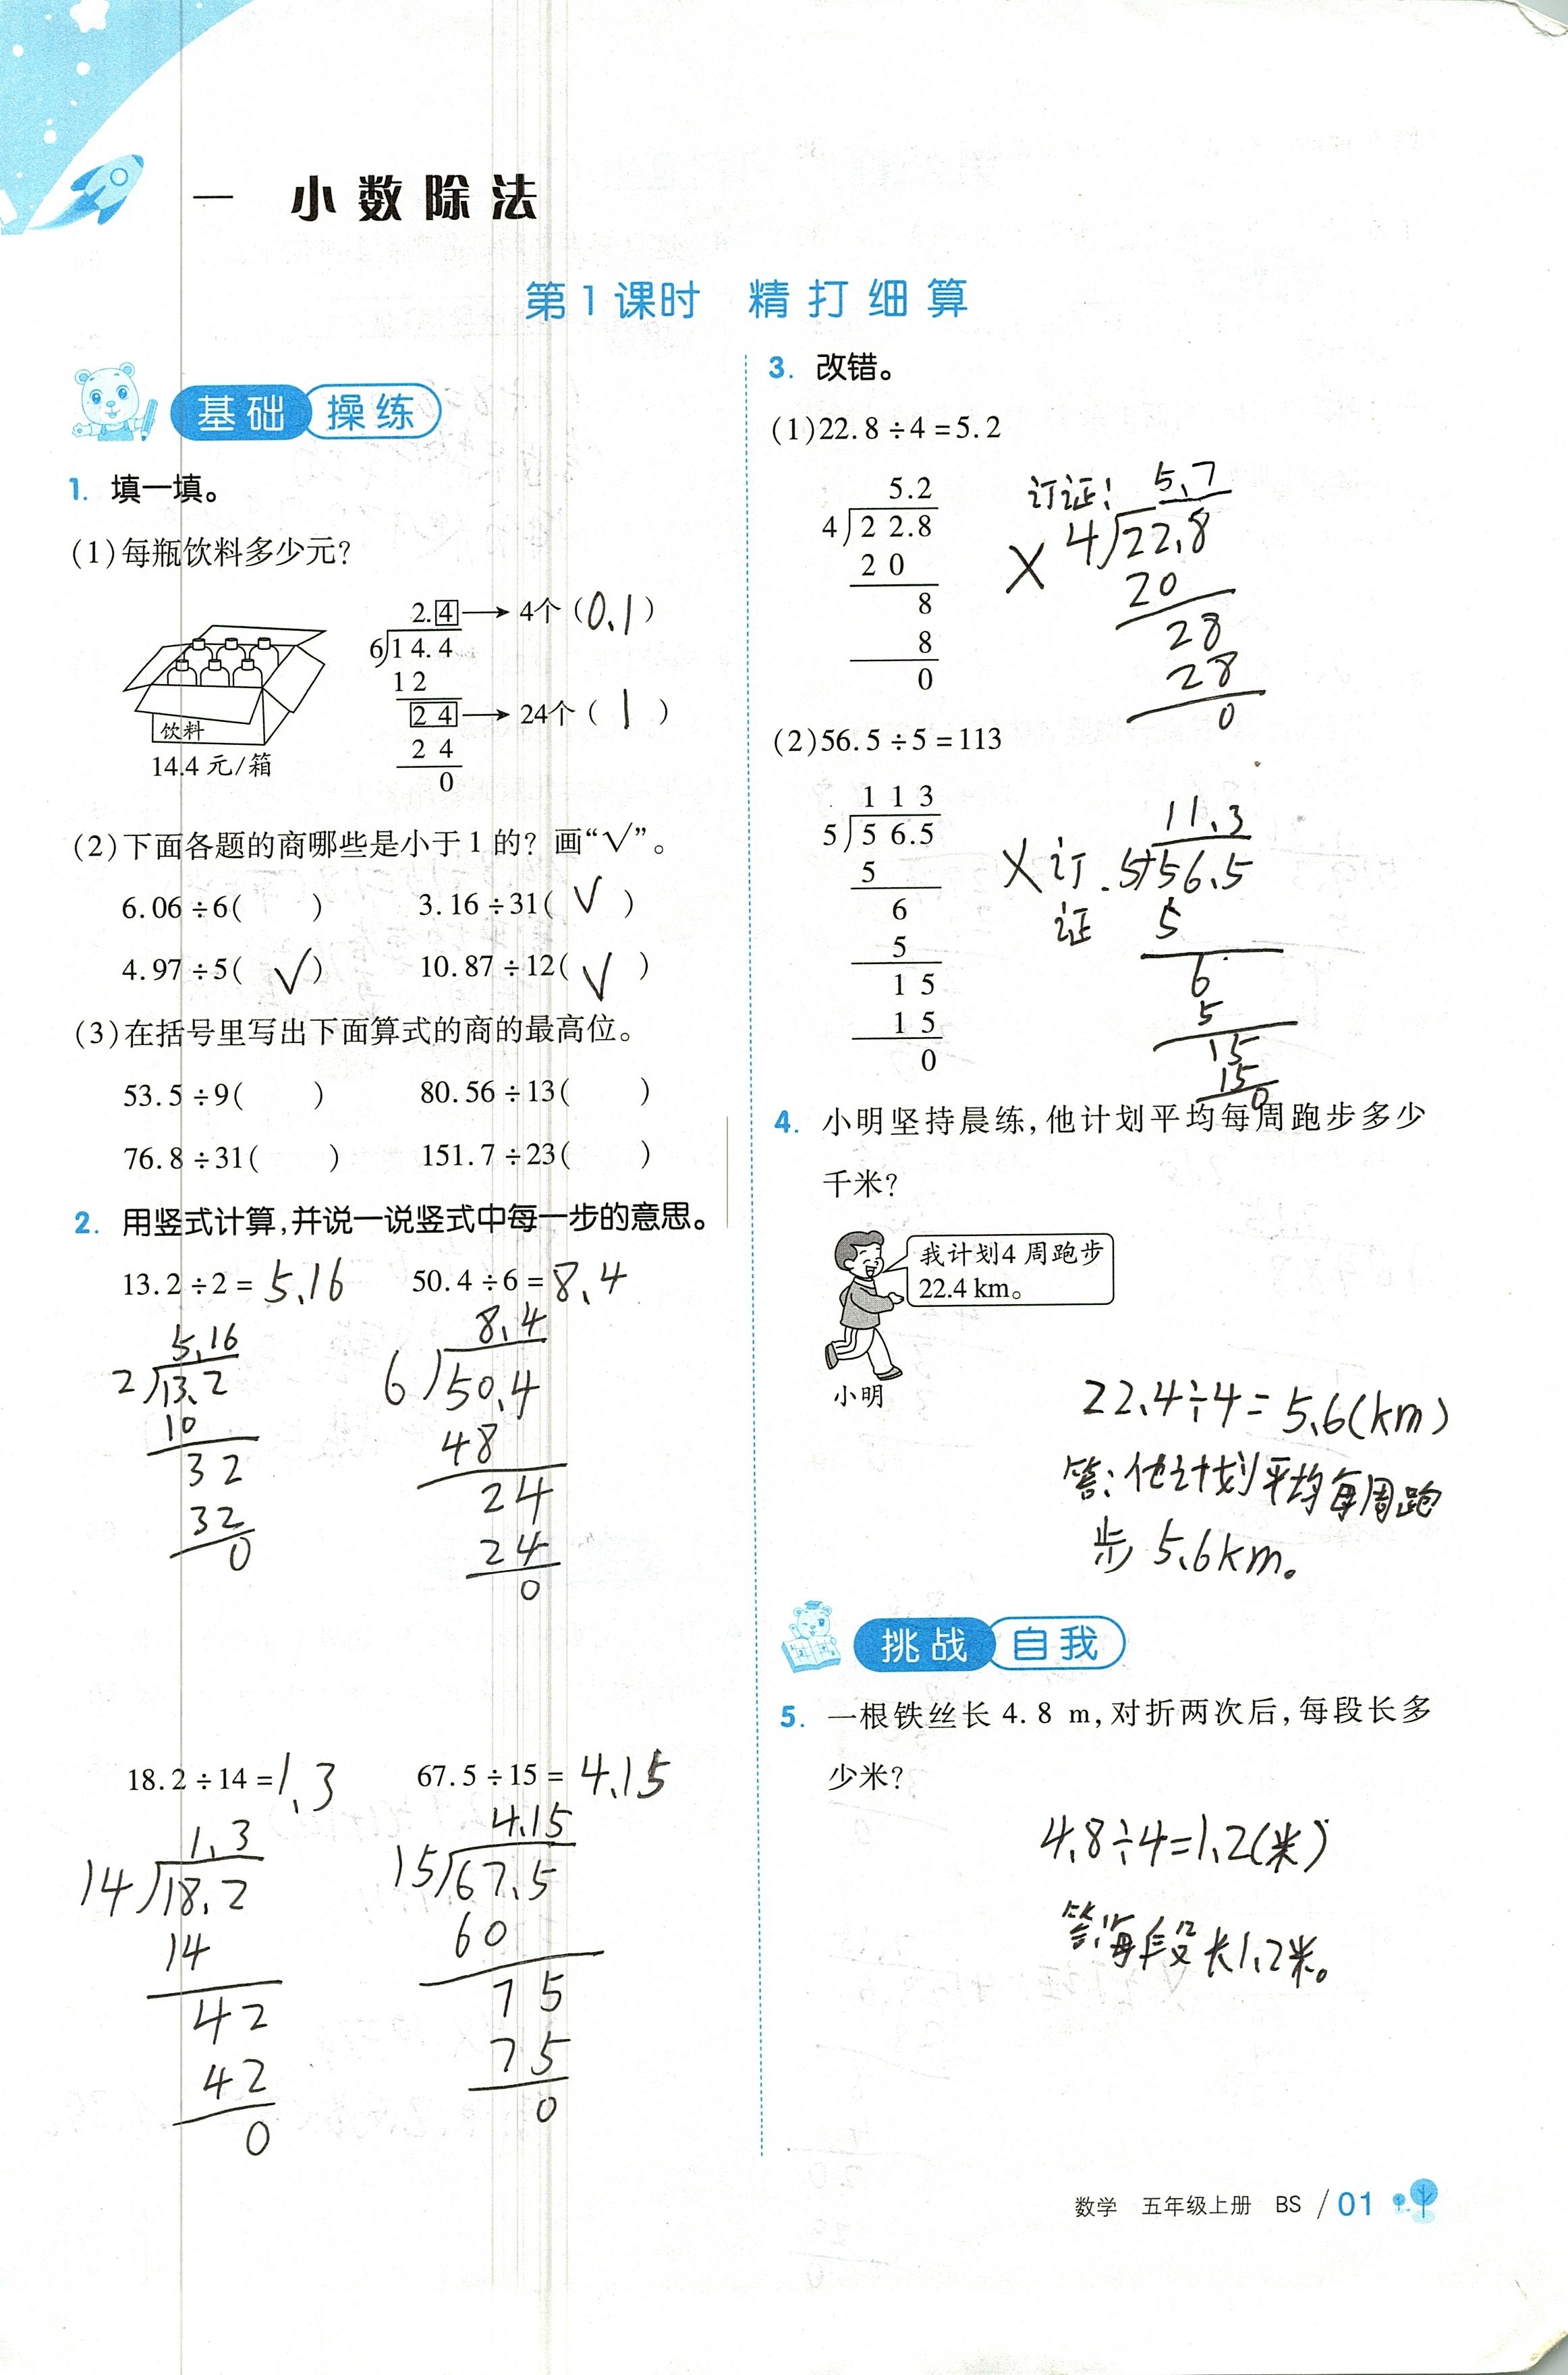 一 小数除法
第1课时 精打细算
基础 操练
1. 填一填。
(1)每瓶饮料多少元?
饮料
14.4元/箱
2.4→4个(0.1)
6 14.4
12
24→24个(1)
24
0
(2)下面各题的商哪些是小于1的? 画“√”。
6.06÷6( ) 3.16÷31(√)
4.97÷5(√) 10.87÷12(√)
(3)在括号里写出下面算式的商的最高位。
53.5÷9( ) 80.56÷13( )
76.8÷31( ) 151.7÷23( )
2. 用竖式计算,并说一说竖式中每一步的意思。
13.2÷2=5.16 50.4÷6=8.4
5.16
2 13.2
10
32
32
0
8.4
6 50.4
48
24
24
0
18.2÷14=1.3 67.5÷15=4.15
1.3
14 18.2
14
42
42
0
4.15
15 67.5
60
75
75
0
3. 改错。
(1)22.8÷4=5.2
5.2
4 22.8
20
8
8
0
×
订证:
5.7
4 22.8
20
28
28
0
(2)56.5÷5=113
113
5 56.5
5
6
5
15
15
0
× 订
证
11.3
5 56.5
5
6
5
15
15
0
4. 小明坚持晨练,他计划平均每周跑步多少
千米?
我计划4周跑步
22.4 km。
小明
22.4÷4=5.6(km)
答:他计划平均每周跑
步5.6km。
挑战 自我
5. 一根铁丝长4.8 m,对折两次后,每段长多
少米?
4.8÷4=1.2(米)
答:每段长1.2米。
数学 五年级上册 BS /01